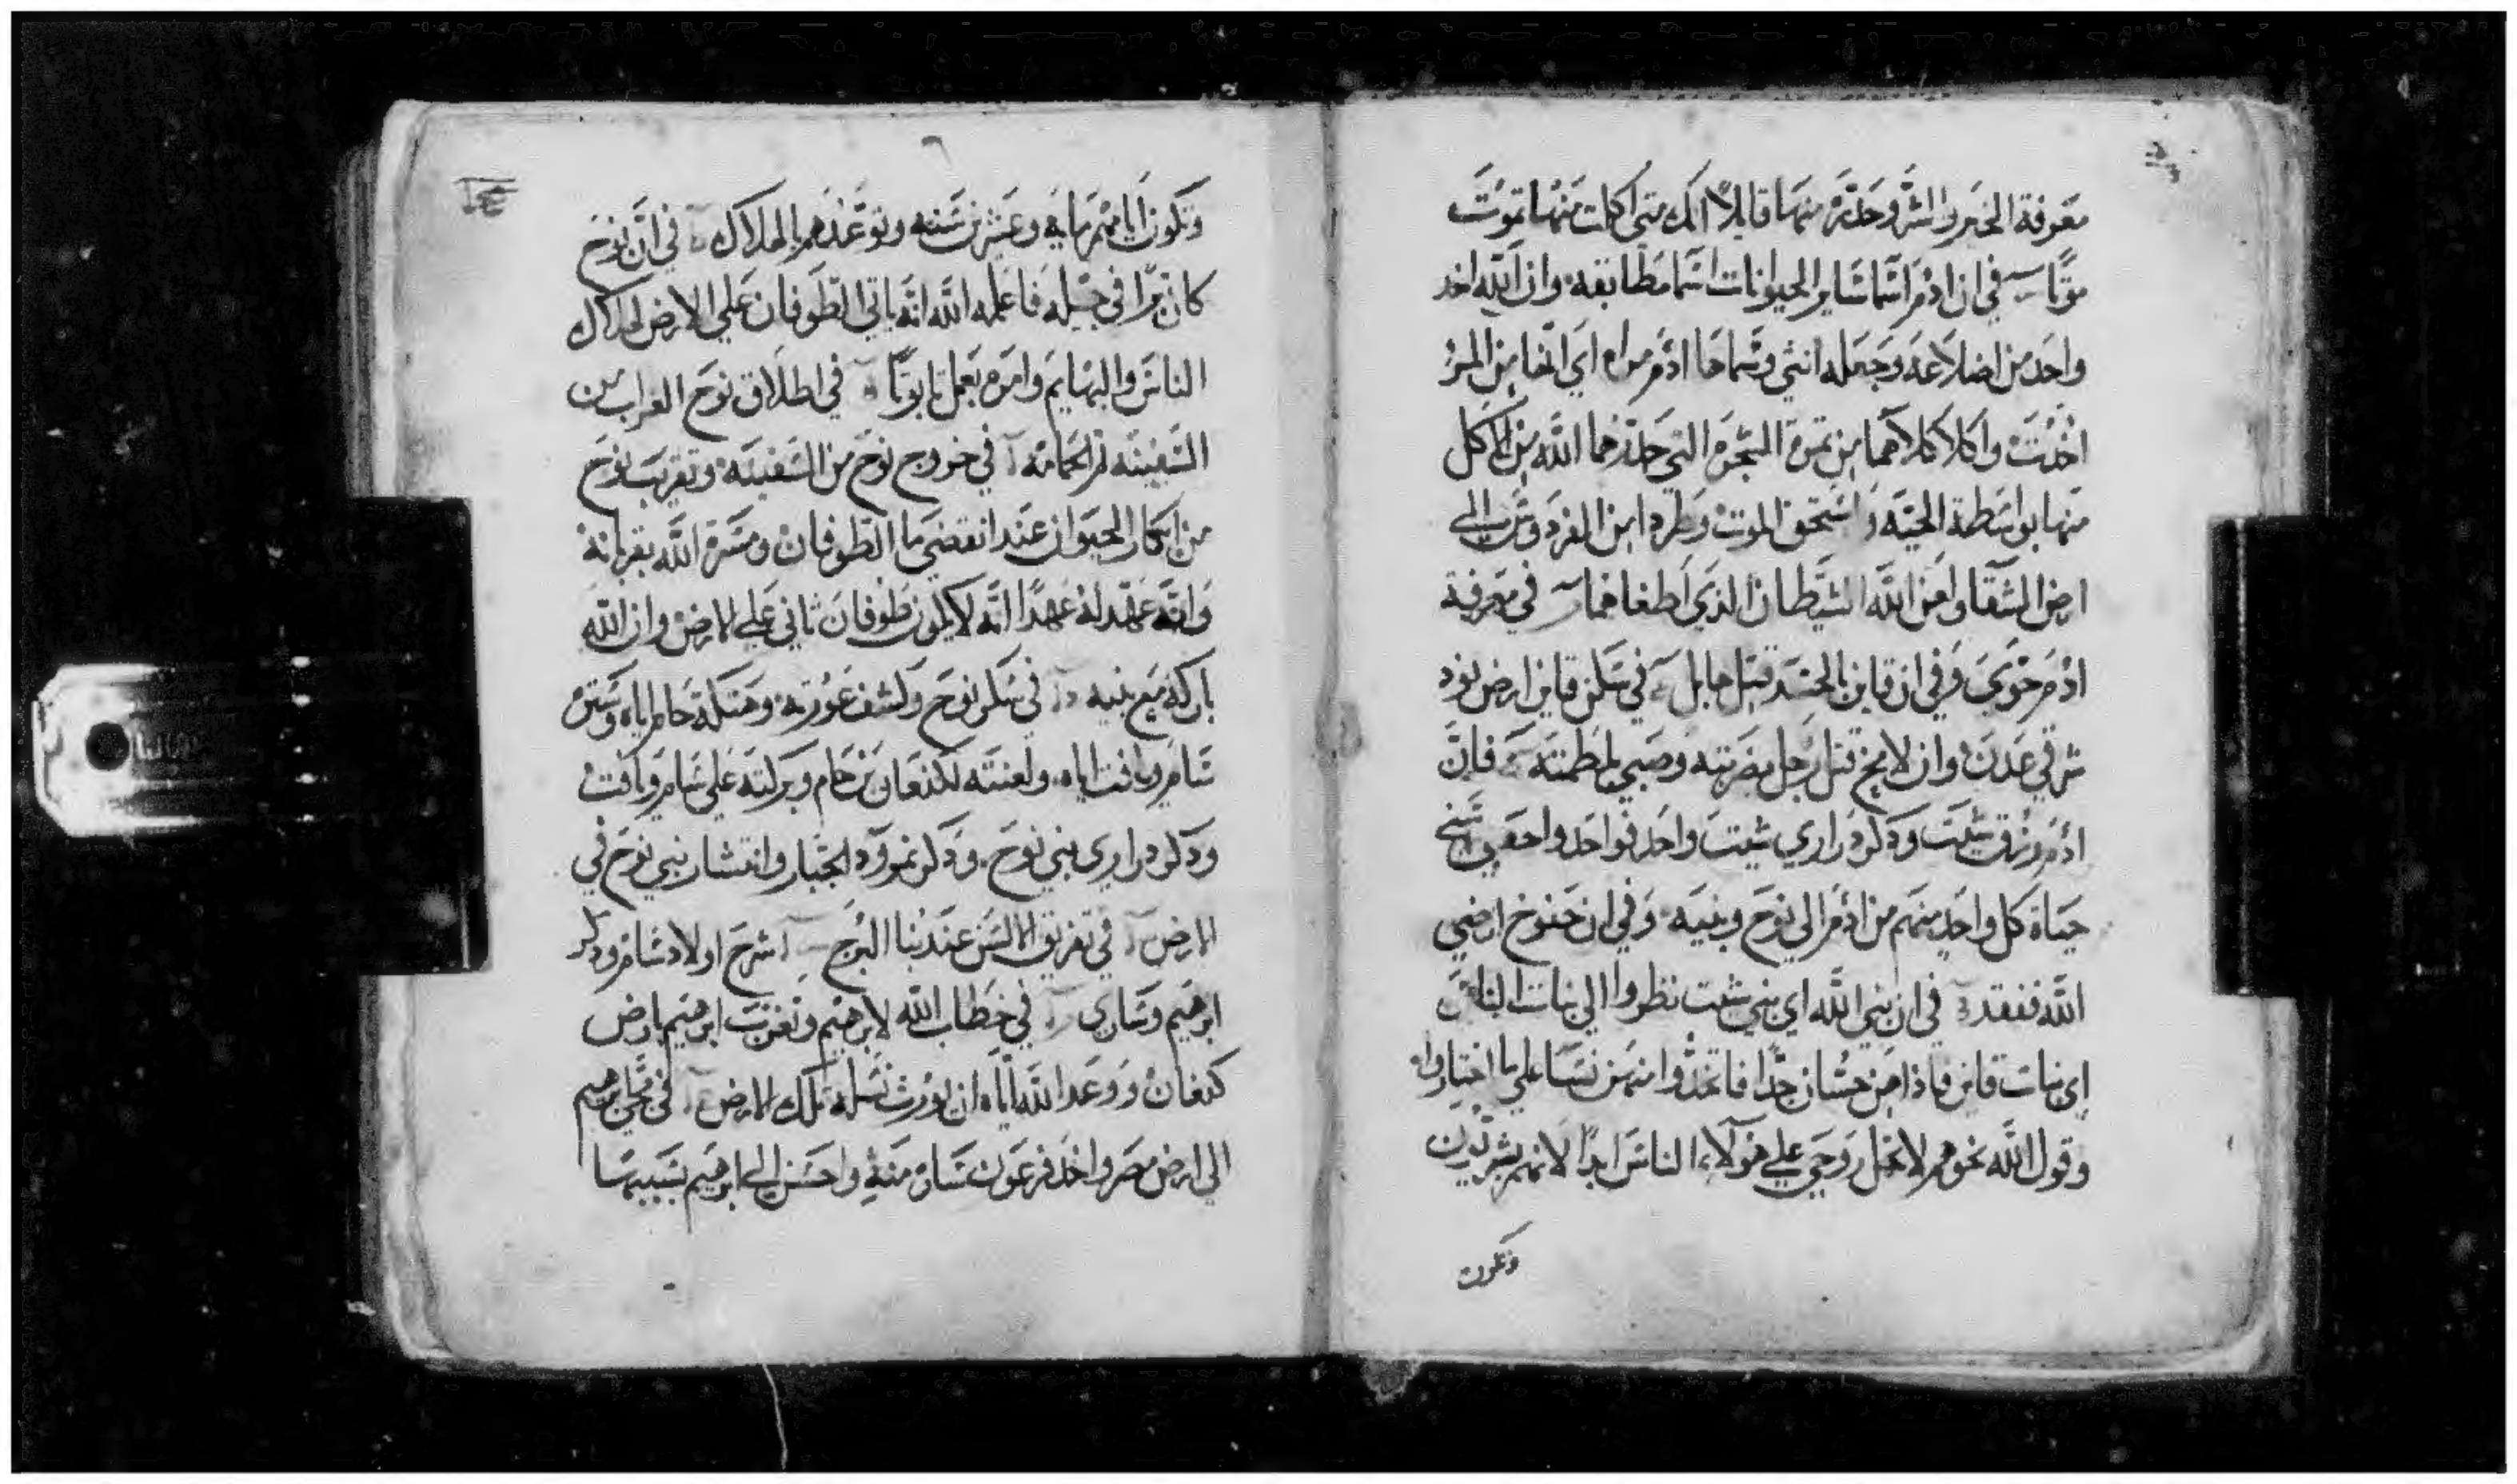 معرفة الخير والشر وحذره منها قايلا انك متى اكلت منها تموت
موتا في ان ادم اسما ساير الحيوانات اسما مطابقه وان الله اخد
واحد من اضلاعه وجعله انثي وسماها ادم مراه اي انها من المرء
اخذت واكلا كلاهما من ثمرة الشجرة التي حذرهما الله من الاكل
منها بواسطة الحيه واستحق الموت وطردا من الفردوس الي
ارض الشقا ولعن الله الشيطان الذي اطغاهما في معرفة
ادم حوي وفي ان قاين بالحسد قتل هابل في سكن قاين ارض نود
شرقي عدن وان لامخ قتل رجل بضربته وصبي بلطمته فان
ادم رزق شيت وذكر دراري شيت واحد فواحد واحقبي سني
حياة كل واحد منهم من ادم الي نوح وبنيه وفي ان حنوخ ارضي
الله ففقد في ان بني الله اي بني شيت نظروا الي بنات الناس
اي بنات قاين فاذا هن حسان جدا فاتخذوا منهن نسا علي ما اختاروا
وقول الله نحوهم لا تحل روحي علي هولاء الناس ابدا لانهم بشريين
وتكون
وتكون ايامهم مايه وعشرين سنه وتوعدهم بالهلاك في ان نوح
كان برا في جيله فاعلمه الله انه ياتي الطوفان علي الارض لهلاك
الناس والبهايم وامره بعمل تابوتا في اطلاق نوح الغراب من
السفينه ثم الحمامه في خروج نوح من السفينه وتقريب نوح
من ابكار الحيوان عند انقضي ما الطوفان ومسرة الله بقربانه
وانه عهد له عهدا انه لا يكون طوفان ثاني علي الارض وان الله
باركه مع بنيه في سكر نوح وكشف عورته وهتكة حام اباه وستر
سام ويافت اياه ولعنته لكنعان بن حام وبركته علي سام ويافت
وذكر دراري بني نوح وذكر نمرود الجبار وانتشار بني نوح في
الارض في تفريق الالسن عند بنا البرج شرح اولاد سام وذكر
ابرهيم وساري في خطاب الله لابرهيم وتغرب ابرهيم بارض
كنعان ووعد الله اياه ان يورث نسله تلك الارض في مجي ابرهيم
الي ارض مصر واخذ فرعون ساره منه واحسن الي ابرهيم بسببها